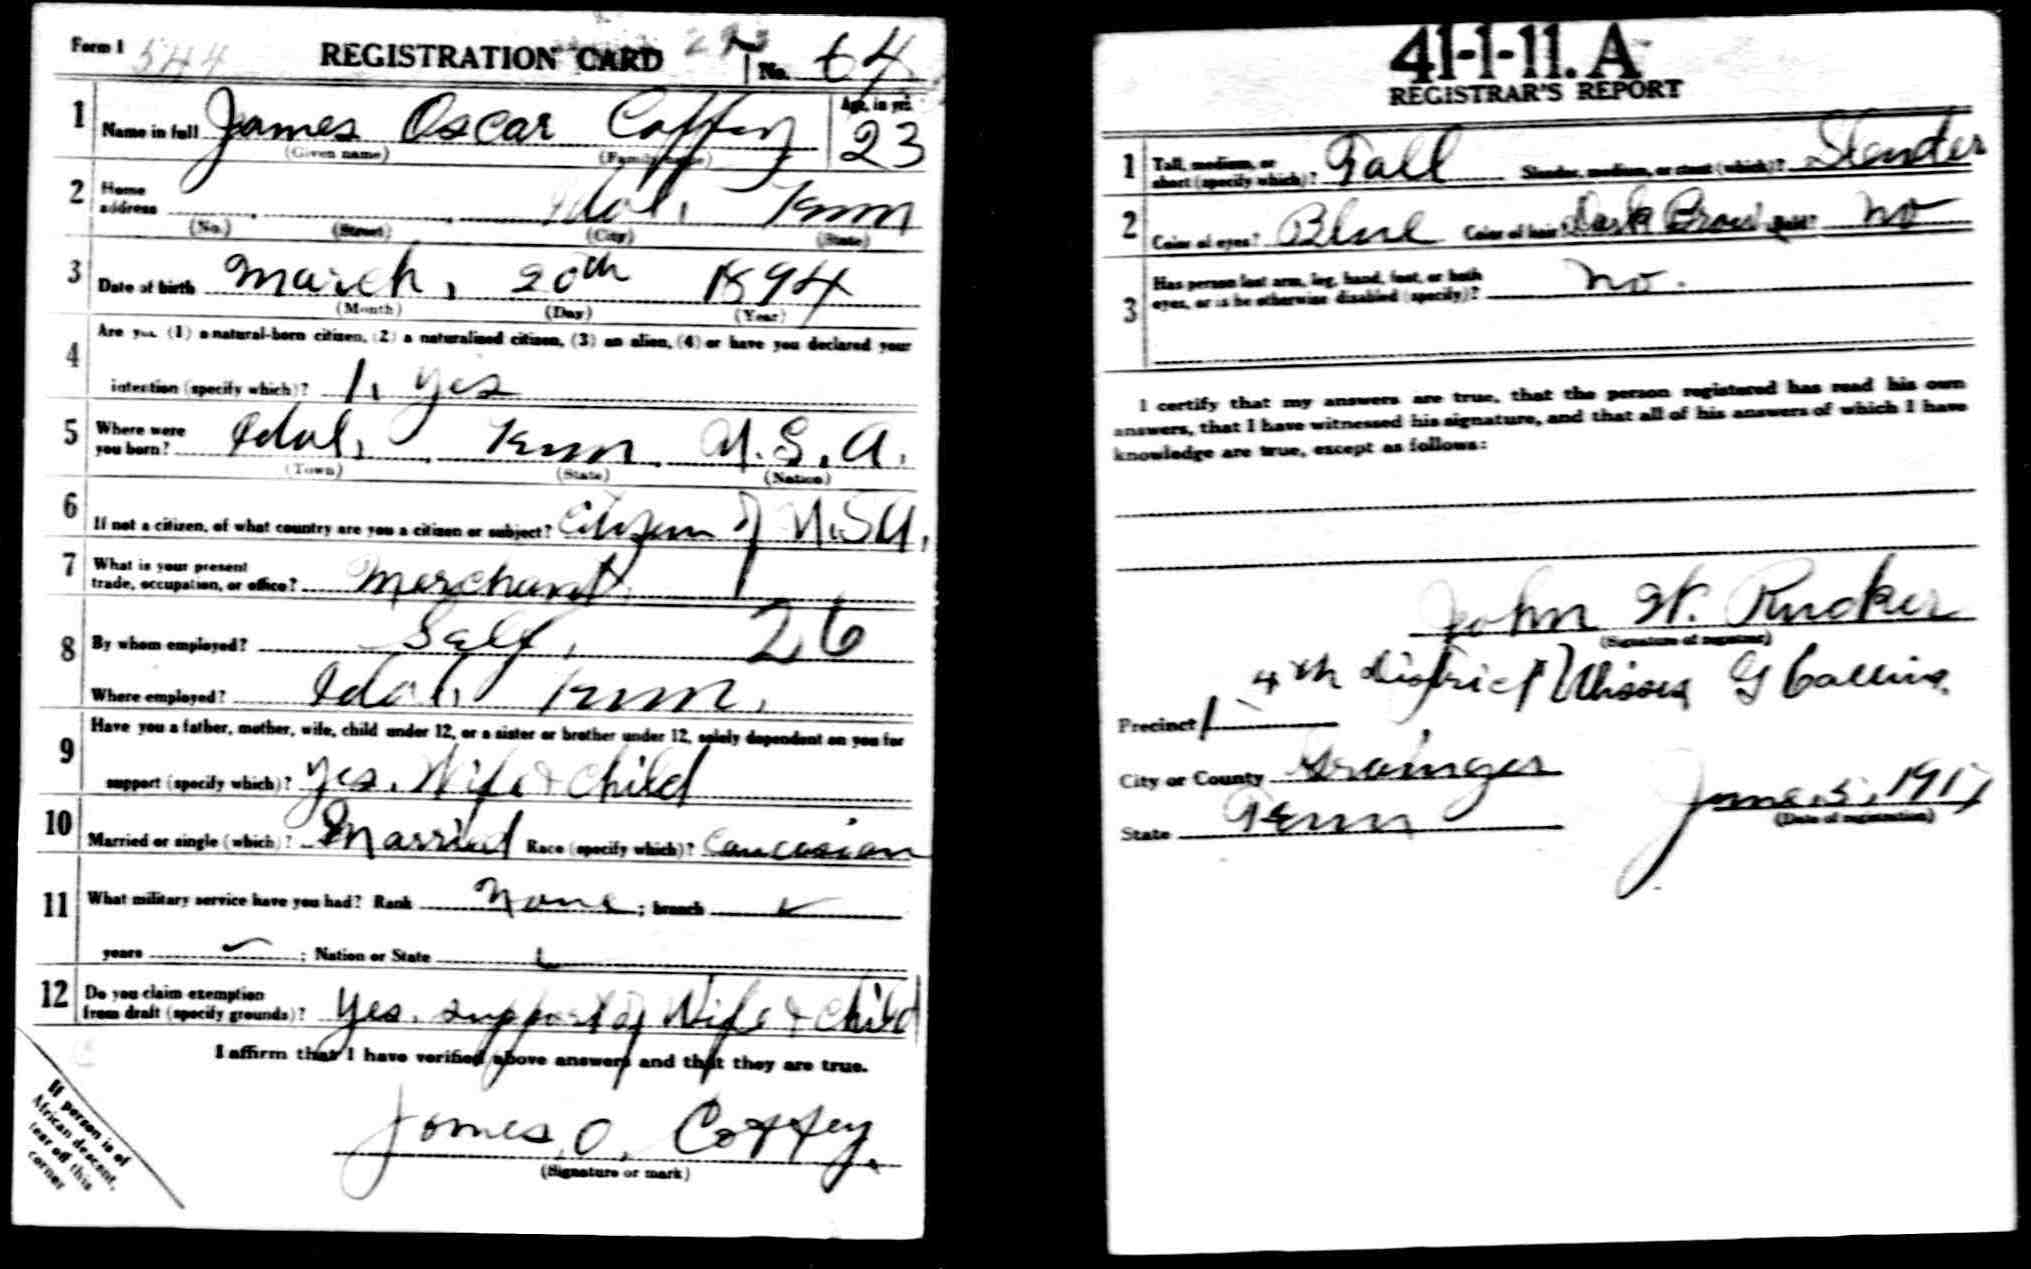 Form 1 544 REGISTRATION CARD No. 64
1 Name in full James Oscar Coffey Age, in yrs. 23
(Given name) (Family name)
2 Home address Idol, Tenn
(No.) (Street) (City) (State)
3 Date of birth March, 20th 1894
(Month) (Day) (Year)
4 Are you (1) a natural-born citizen, (2) a naturalized citizen, (3) an alien, (4) or have you declared your
intention (specify which)? 1, Yes
5 Where were you born? Idol, Tenn U.S.A.
(Town) (State) (Nation)
6 If not a citizen, of what country are you a citizen or subject? Citizen of U.S.A.
7 What is your present trade, occupation, or office? Merchant
8 By whom employed? Self, 26
Where employed? Idol, Tenn.
9 Have you a father, mother, wife, child under 12, or a sister or brother under 12, solely dependent on you for
support (specify which)? Yes. Wife & Child
10 Married or single (which)? Married Race (specify which)? Caucasian
11 What military service have you had? Rank None ; branch
years ; Nation or State
12 Do you claim exemption from draft (specify grounds)? Yes. support of Wife & Child
I affirm that I have verified above answers and that they are true.
James O. Coffey.
(Signature or mark)
If person is of
African descent,
tear off this
corner
41-1-11. A
REGISTRAR'S REPORT
1 Tall, medium, or short (specify which)? Tall Slender, medium, or stout (which)? Slender
2 Color of eyes? Blue Color of hair Dark Brow Bald? No
3 Has person lost arm, leg, hand, foot, or both eyes, or is he otherwise disabled (specify)? No.
I certify that my answers are true, that the person registered has read his own
answers, that I have witnessed his signature, and that all of his answers of which I have
knowledge are true, except as follows:
John W. Rucker
(Signature of registrar)
4th District G Collins.
Precinct 1
City or County Grainger
State Tenn June, 5, 1917
(Date of registration)